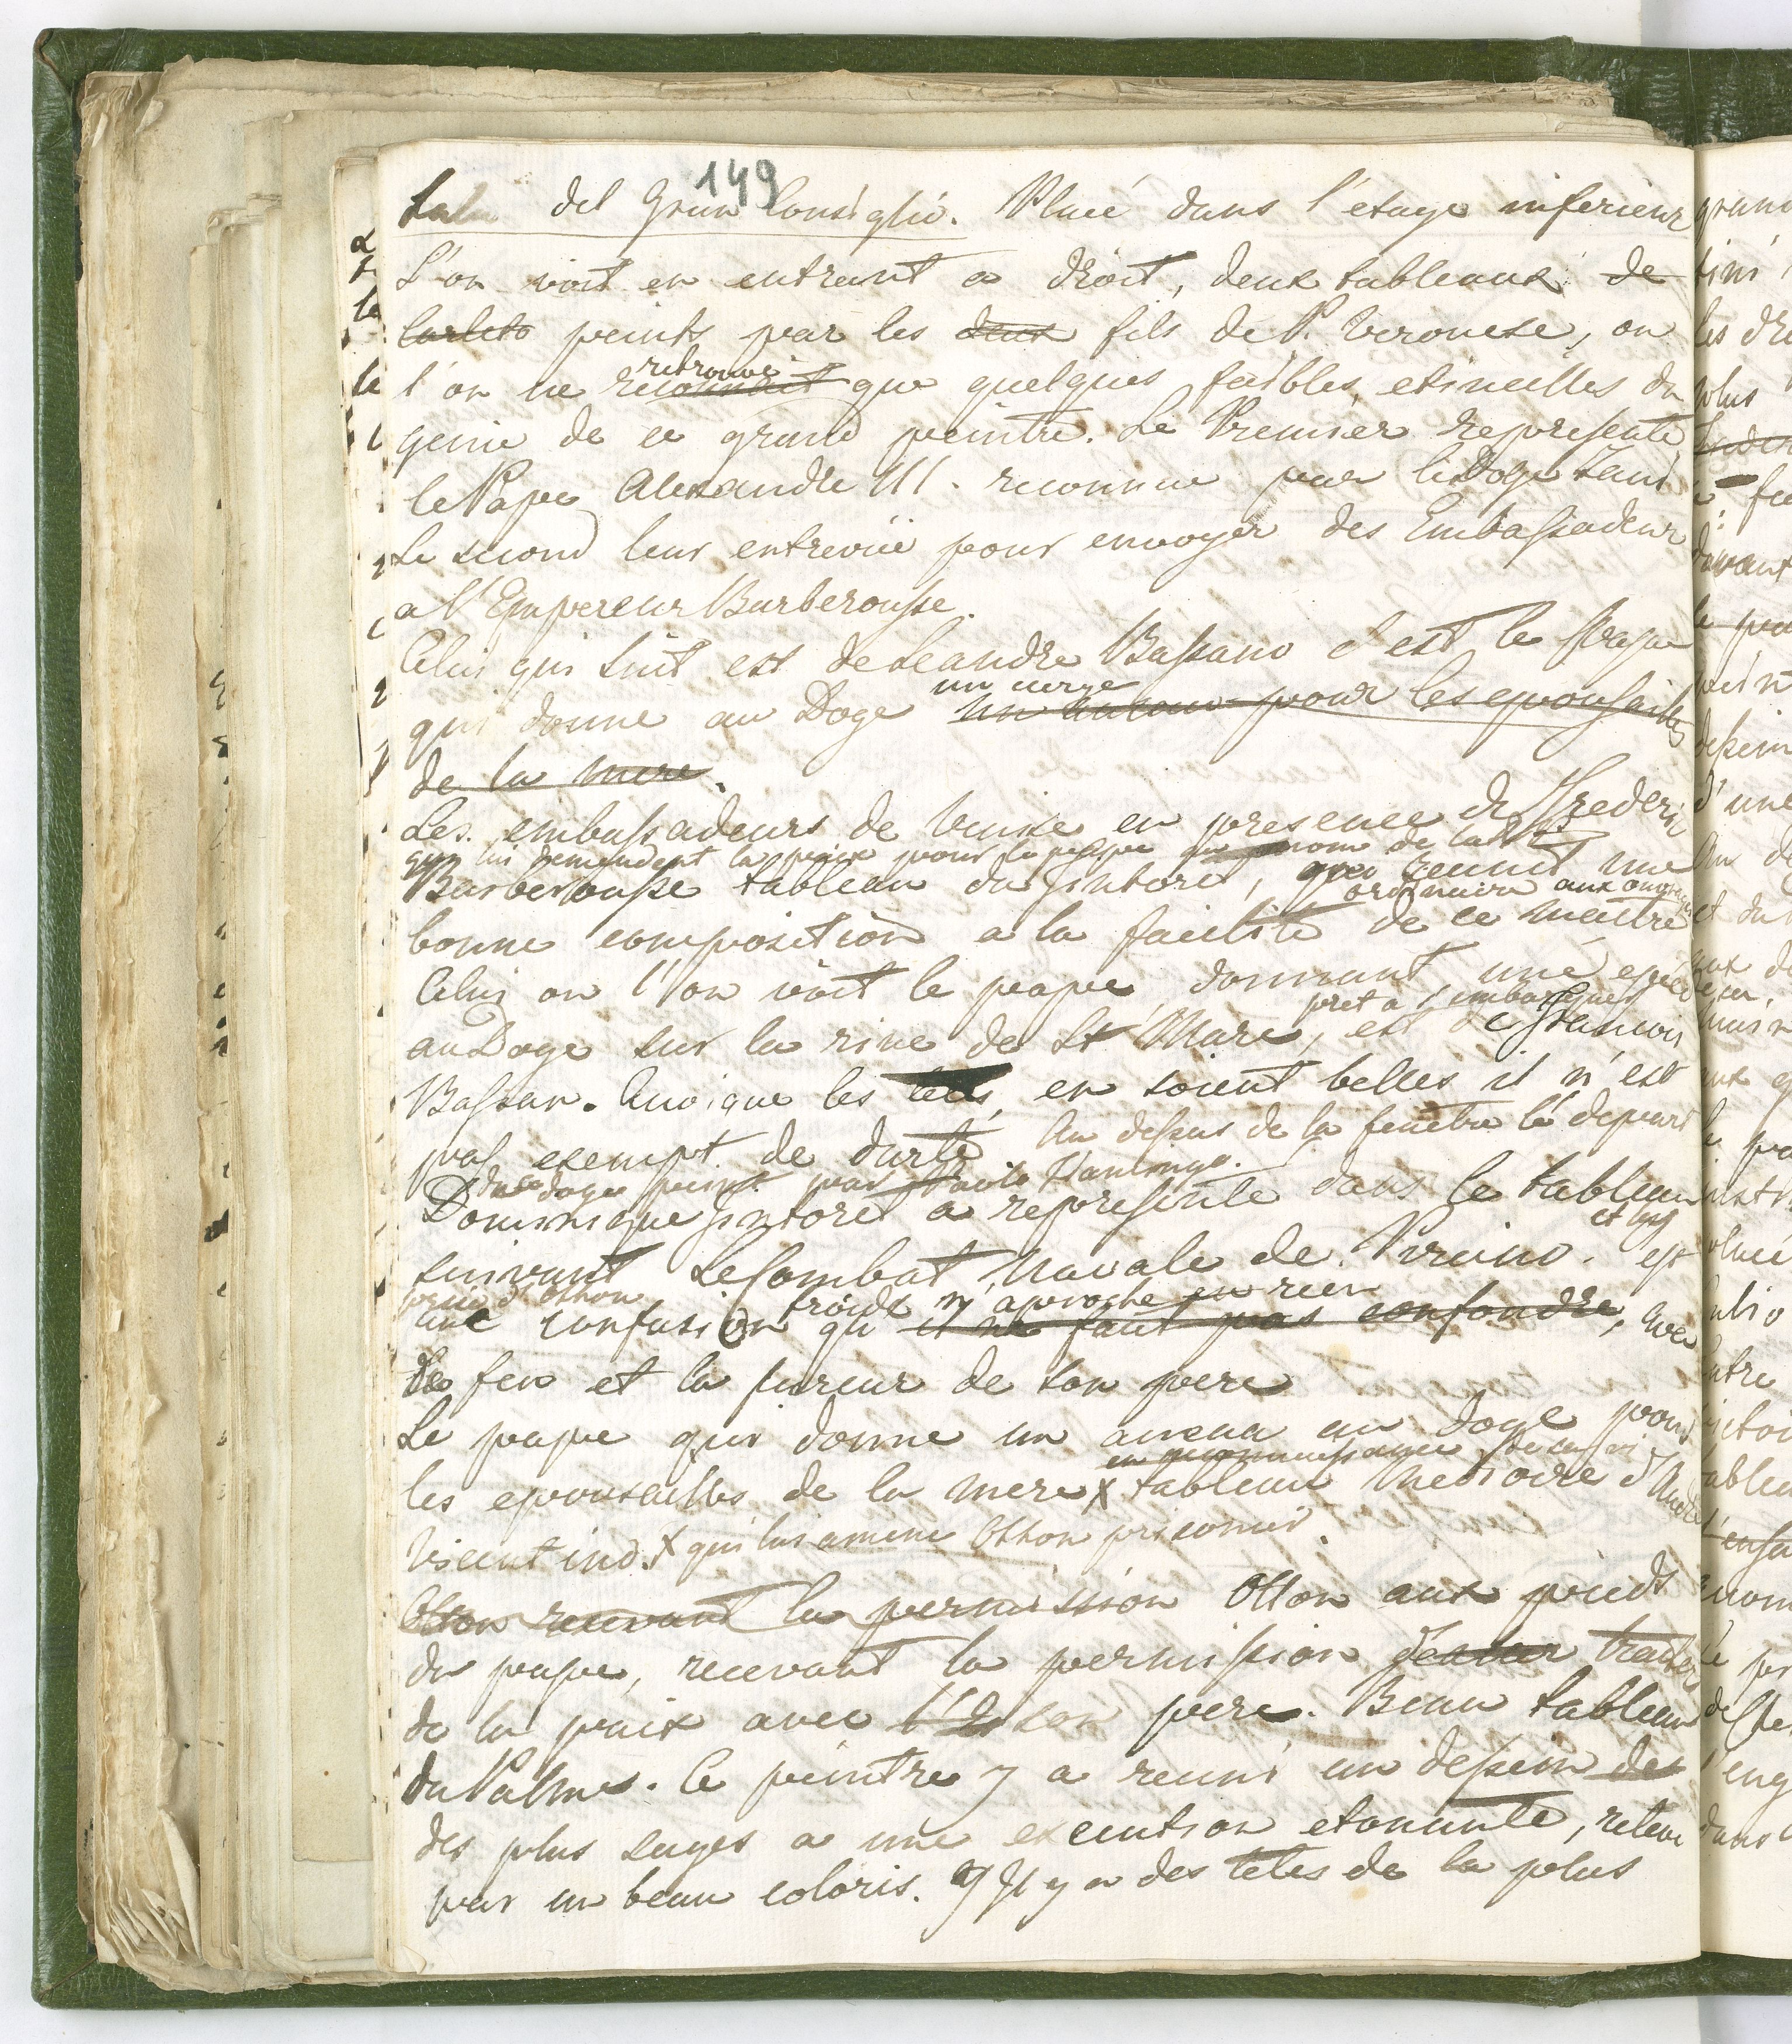 149
Sala del Gran Consiglio. Placé dans l'etage inferieur
L'on voit en entrant a droit, deux tableaux de
Carleto peints par les deux fils de P. Veronese, ou
retrouve
l'on ne reconnoit que quelques faibles etincelles du
genie de ce grand peintre. Le Premier represente
le Pape Alexandre III. reconnue par le Doge Ziani
Le second leur entrevüe pour envoyer des Embassadeur
a l'Empereur Barberousse.
Celui qui suit est de Leandre Bassano c'est le Pape
un cierge
qui donne au Doge un anneau pour les epousailles
de la mere.
Les embassadeurs de Venise en presence de Frederic
qui lui demandent la paix pour le pappe au nom de la
Barberousse tableau du Tintoret, qui reunit une
ordinaire aux ouvrages
bonne composition a la facilité de ce maitre
Celui ou l'on voit le pape donnant une epée
pret a s'embarquer
au Doge sur la rive de St Marc, est de Francois
Bassan. Quoique les tetes en soient belles il n'est
pas exempt de durté Au dessus de la fenêtre le depart
du doge peint par Paolo Fiamengo.
Dominique Tintoret a represente dans le tableau
et la
suivant le Combat Navale de Pirano. est
prise d'Othon
froide n'aproche en rien
une confusion qu'il ne faut pas confondre, avec
le feu et la fureur de son pere
Le pape qui donne un aneau au Doge pour
en reconnaissance
les epousailles de la mere X tableau mediocre d'André
Vicentino. X qui lui amene Othon prisonier.
Otton recevant la permission Otton aux pieds
du pape, recevant la permission d'entrer traiter
de la paix avec l'E son pere. Beau tableau
du Palme. Ce peintre y a reuni un dessein des
des plus sages a une execution etonante, releve
par un beau coloris. Il y a des têtes de la plus